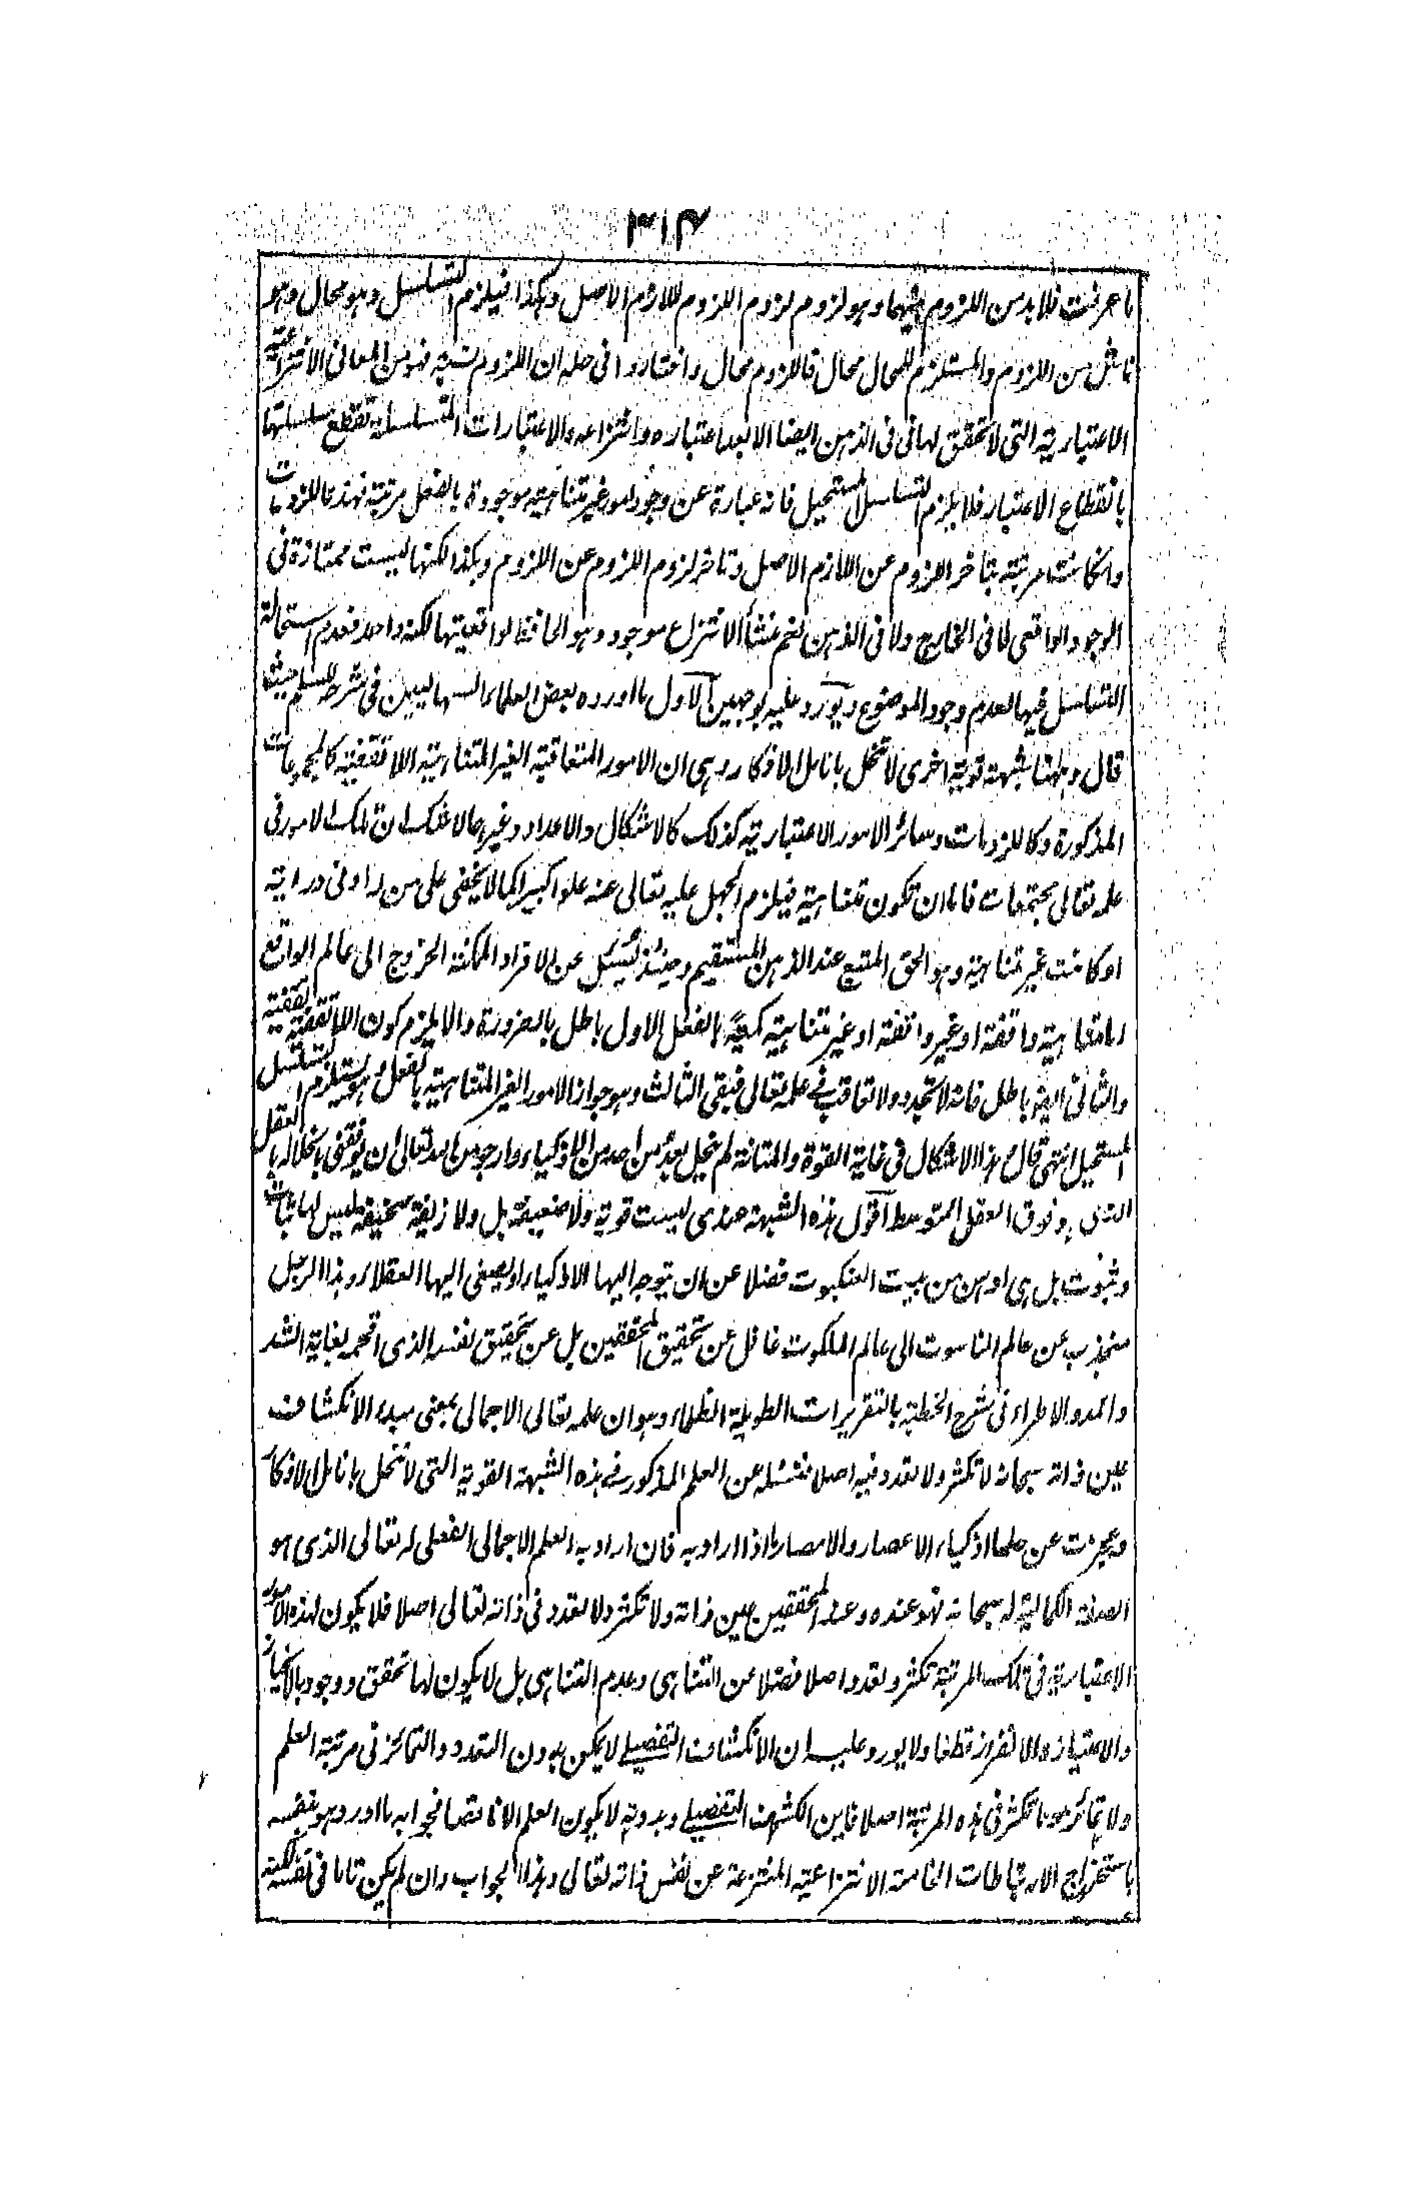 ٣١٤
ما عرفت فلا بد من اللزوم بينهما وهو لزوم لزوم اللزوم لللازم الاصل وهكذا فيلزم التسلسل وهو محال وهو
ناش من اللزوم والمستلزم للمحال محال فاللزوم محال واختاروا فى حله ان اللزوم نسبة فهو من المعانى الانتزاعية
الاعتبارية التى لا تحقق لها فى الذهن ايضا الا بعد اعتباره وانتزاعه والاعتبارات المتسلسلة تنقطع سلسلتها
بانقطاع الاعتبار فلا يلزم التسلسل المستحيل فانه عبارة عن وجود امور غير متناهية موجودة بالفعل مرتبة فهذه اللزومات
وان كانت مرتبة بتاخر اللزوم عن اللازم الاصل وتاخر لزوم اللزوم عن اللزوم وهكذا لكنها ليست ممتازة فى
الوجود الواقعى لا فى الخارج ولا فى الذهن نعم منشأ الانتزاع موجود وهو الحافظ لواقعيتها لكنه واحد فعدم استحالة
التسلسل فيها لعدم وجود الموضوع ويورد عليه بوجهين الاول ما اورده بعض العلماء السهاليين فى شرحه للسلم حيث
قال وههنا شبهة قوية اخرى لا تنحل بانامل الافكار وهى ان الامور المتعاقبة الغير المتناهية اللاتقفية كالمجموعات
المذكورة وكاللزومات وسائر الامور الاعتبارية كذلك كالاشكال والاعداد وغيرها لا شك ان تلك الامور فى
علمه تعالى مجتمعات فاما ان تكون متناهية فيلزم الجهل عليه تعالى عنه علوا كبيرا كما لا يخفى على من له ادنى دراية
او كانت غير متناهية وهو الحق المتبع عند الذهن المستقيم وحينئذ نسئل عن الافراد الممكنة الخروج الى عالم الواقع
امتناهية واقفة او غير واقفة او غير متناهية كمية بالفعل الاول باطل بالضرورة والا يلزم كون اللاتقفية تقفية
والثانى ايضا باطل فانه لا تجدد ولا تعاقب فى علمه تعالى فبقى الثالث وهو جواز الامور الغير المتناهية بالفعل وهو يستلزم التسلسل
المستحيل انتهى قال هذا الاشكال فى غاية القوة والمتانة لم ينحل بعد من احد من الاذكياء وارجو من الله تعالى ان يوفقنى بانحلاله بالعقل
الذى هو فوق العقل المتوسط اقول هذه الشبهة عندى ليست قوية ولا ضعيفة بل ولا زيفة سخيفة فليس لها ثبات
وثبوت بل هى اوهن من بيت العنكبوت فضلا عن ان يتوجه اليها الاذكياء او يصغى اليها العقلاء وهذا الرجل
منجذب عن عالم الناسوت الى عالم الملكوت غافل عن تحقيق المحققين بل عن تحقيق نفسه الذى اقحمه بغاية الشد
والمد والاطراء فى شرح الخطبة بالتقريرات الطويلة الظلماء وهو ان علمه تعالى الاجمالى بمعنى مبدء الانكشاف
عين ذاته سبحانه لا تكثر ولا تعدد فيه اصلا فنسئله عن العلم المذكور فى هذه الشبهة القوية التى لا تنحل بانامل الافكار
وعجزت عن حلها اذكياء الاعصار والامصار ماذا اراد به فان اراد به العلم الاجمالى الفعلى له تعالى الذى هو
الصفة الكمالية له سبحانه فهو عنده وعند المحققين عين ذاته ولا تكثر ولا تعدد فى ذاته تعالى اصلا فلا يكون لهذه الامور
الاعتبارية فى تلك المرتبة تكثر وتعدد اصلا فضلا عن التناهى وعدم التناهى بل لا يكون لها تحقق ووجود بالانحياز
والامتياز والانفراز قطعا ولا يورد عليه ان الانكشاف التفصيلى لا يمكن بدون التعدد والتمائز فى مرتبة العلم
ولا تمائز ولا تكثر فى هذه المرتبة اصلا فاين الكشف التفصيلى وبدونه لا يكون العلم الا ناقصا فجوابه ما اورد هو بنفسه
باستخراج الارتباطات الخاصة الانتزاعية المنتزعة عن نفس ذاته تعالى وهذا الجواب وان لم يكن تاما فى نفسه لكنه